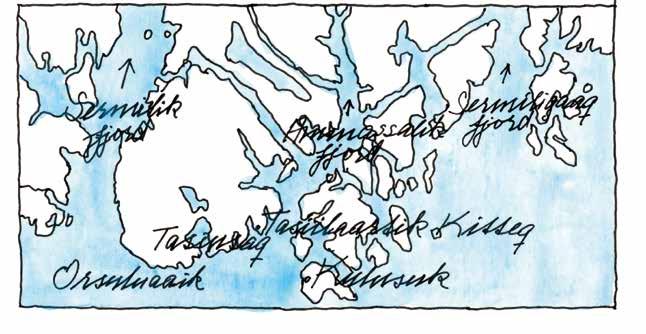 Sermilik
fjord
Ammassalik
fjord
Sermiligaaq
fjord
Tasiusaq
Tasiilaartik
Kulusuk